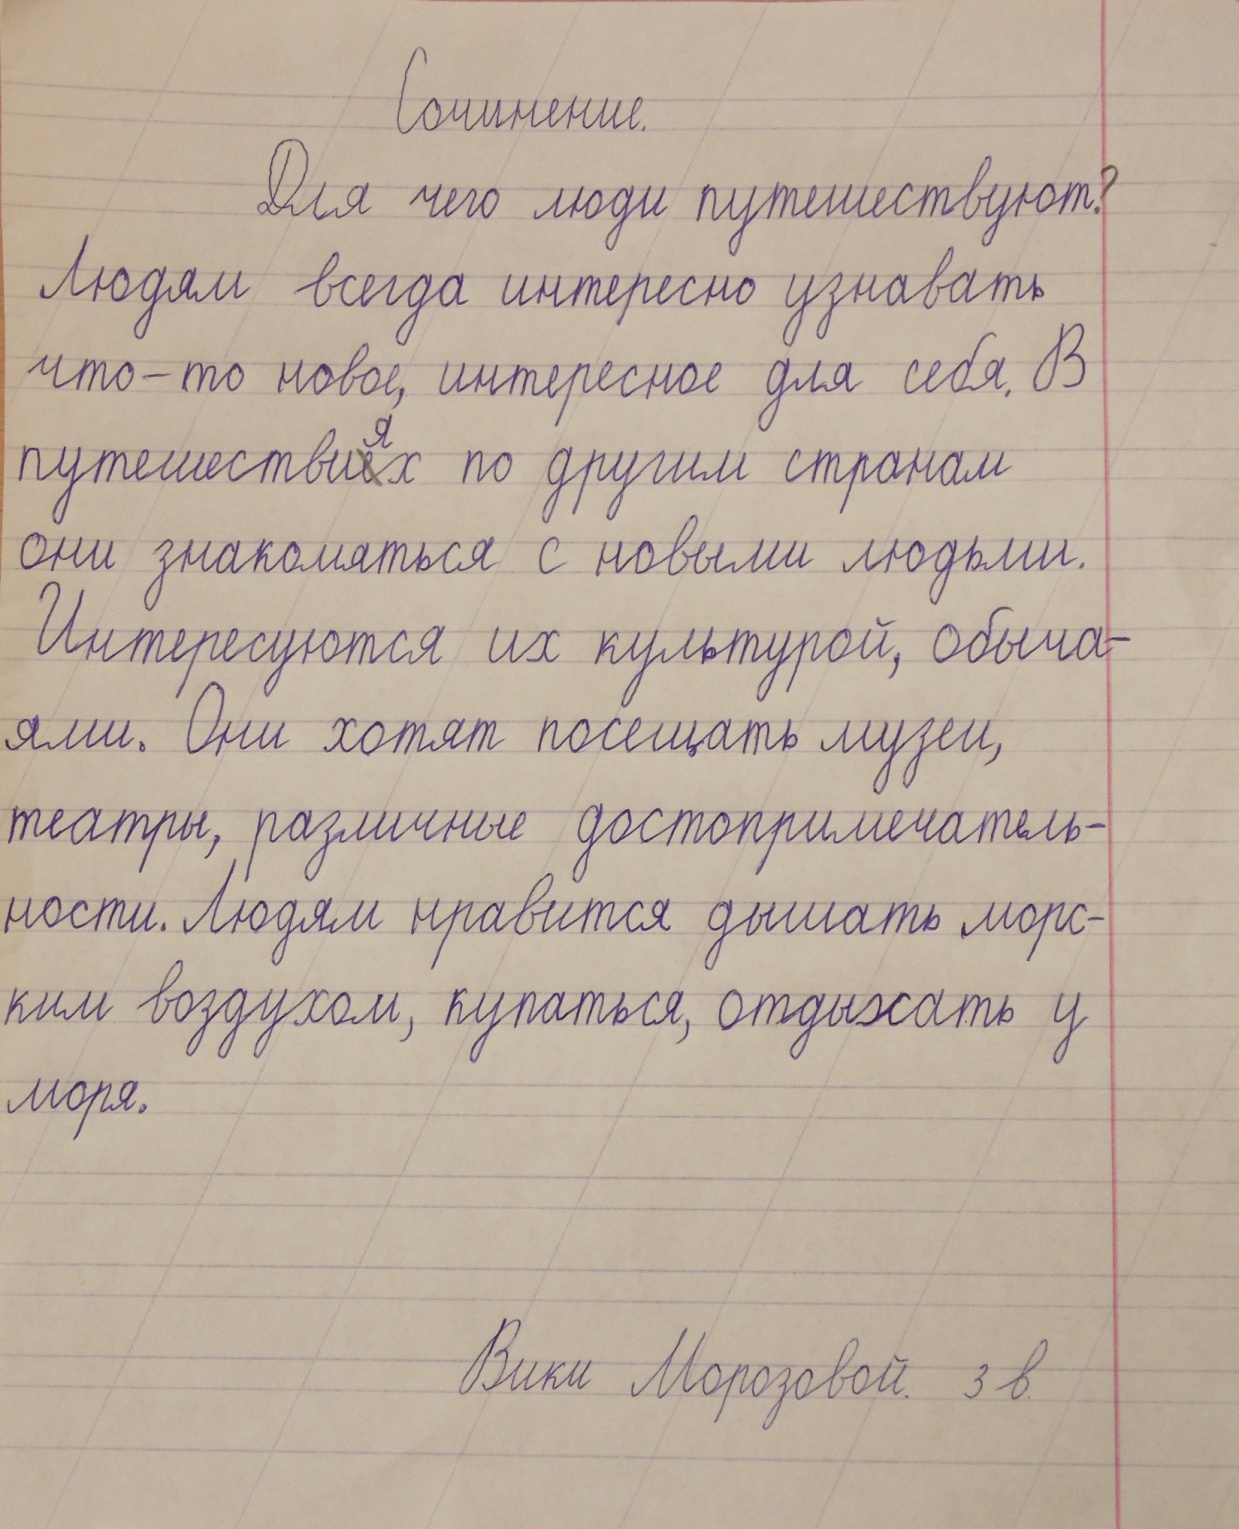 Сочинение.
Для чего люди путешествуют?
Людям всегда интересно узнавать
что-то новое, интересное для себя. В
путешествиях по другим странам
они знакоматься с новыми людьми.
Интересуются их культурой, обыча-
ями. Они хотят посещать музеи,
театры, различные достопримечатель-
ности. Людям нравится дышать морс-
ким воздухом, купаться, отдыхать у
моря.
Вики Морозовой. 3 в